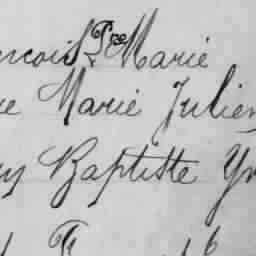 ncois Pre Marie
ie Marie Julien
ry Baptiste Yv